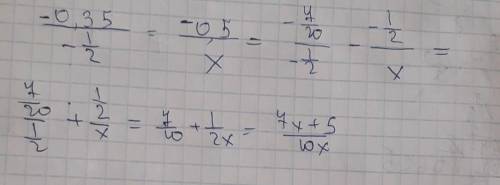 \frac{-0,35}{-\frac{1}{2}} = \frac{-0,5}{x} = \frac{-\frac{7}{20}}{-\frac{1}{2}} - \frac{-\frac{1}{2}}{x} =
\frac{\frac{7}{20}}{\frac{1}{2}} + \frac{\frac{1}{2}}{x} = \frac{7}{10} + \frac{1}{2x} = \frac{7x+5}{10x}